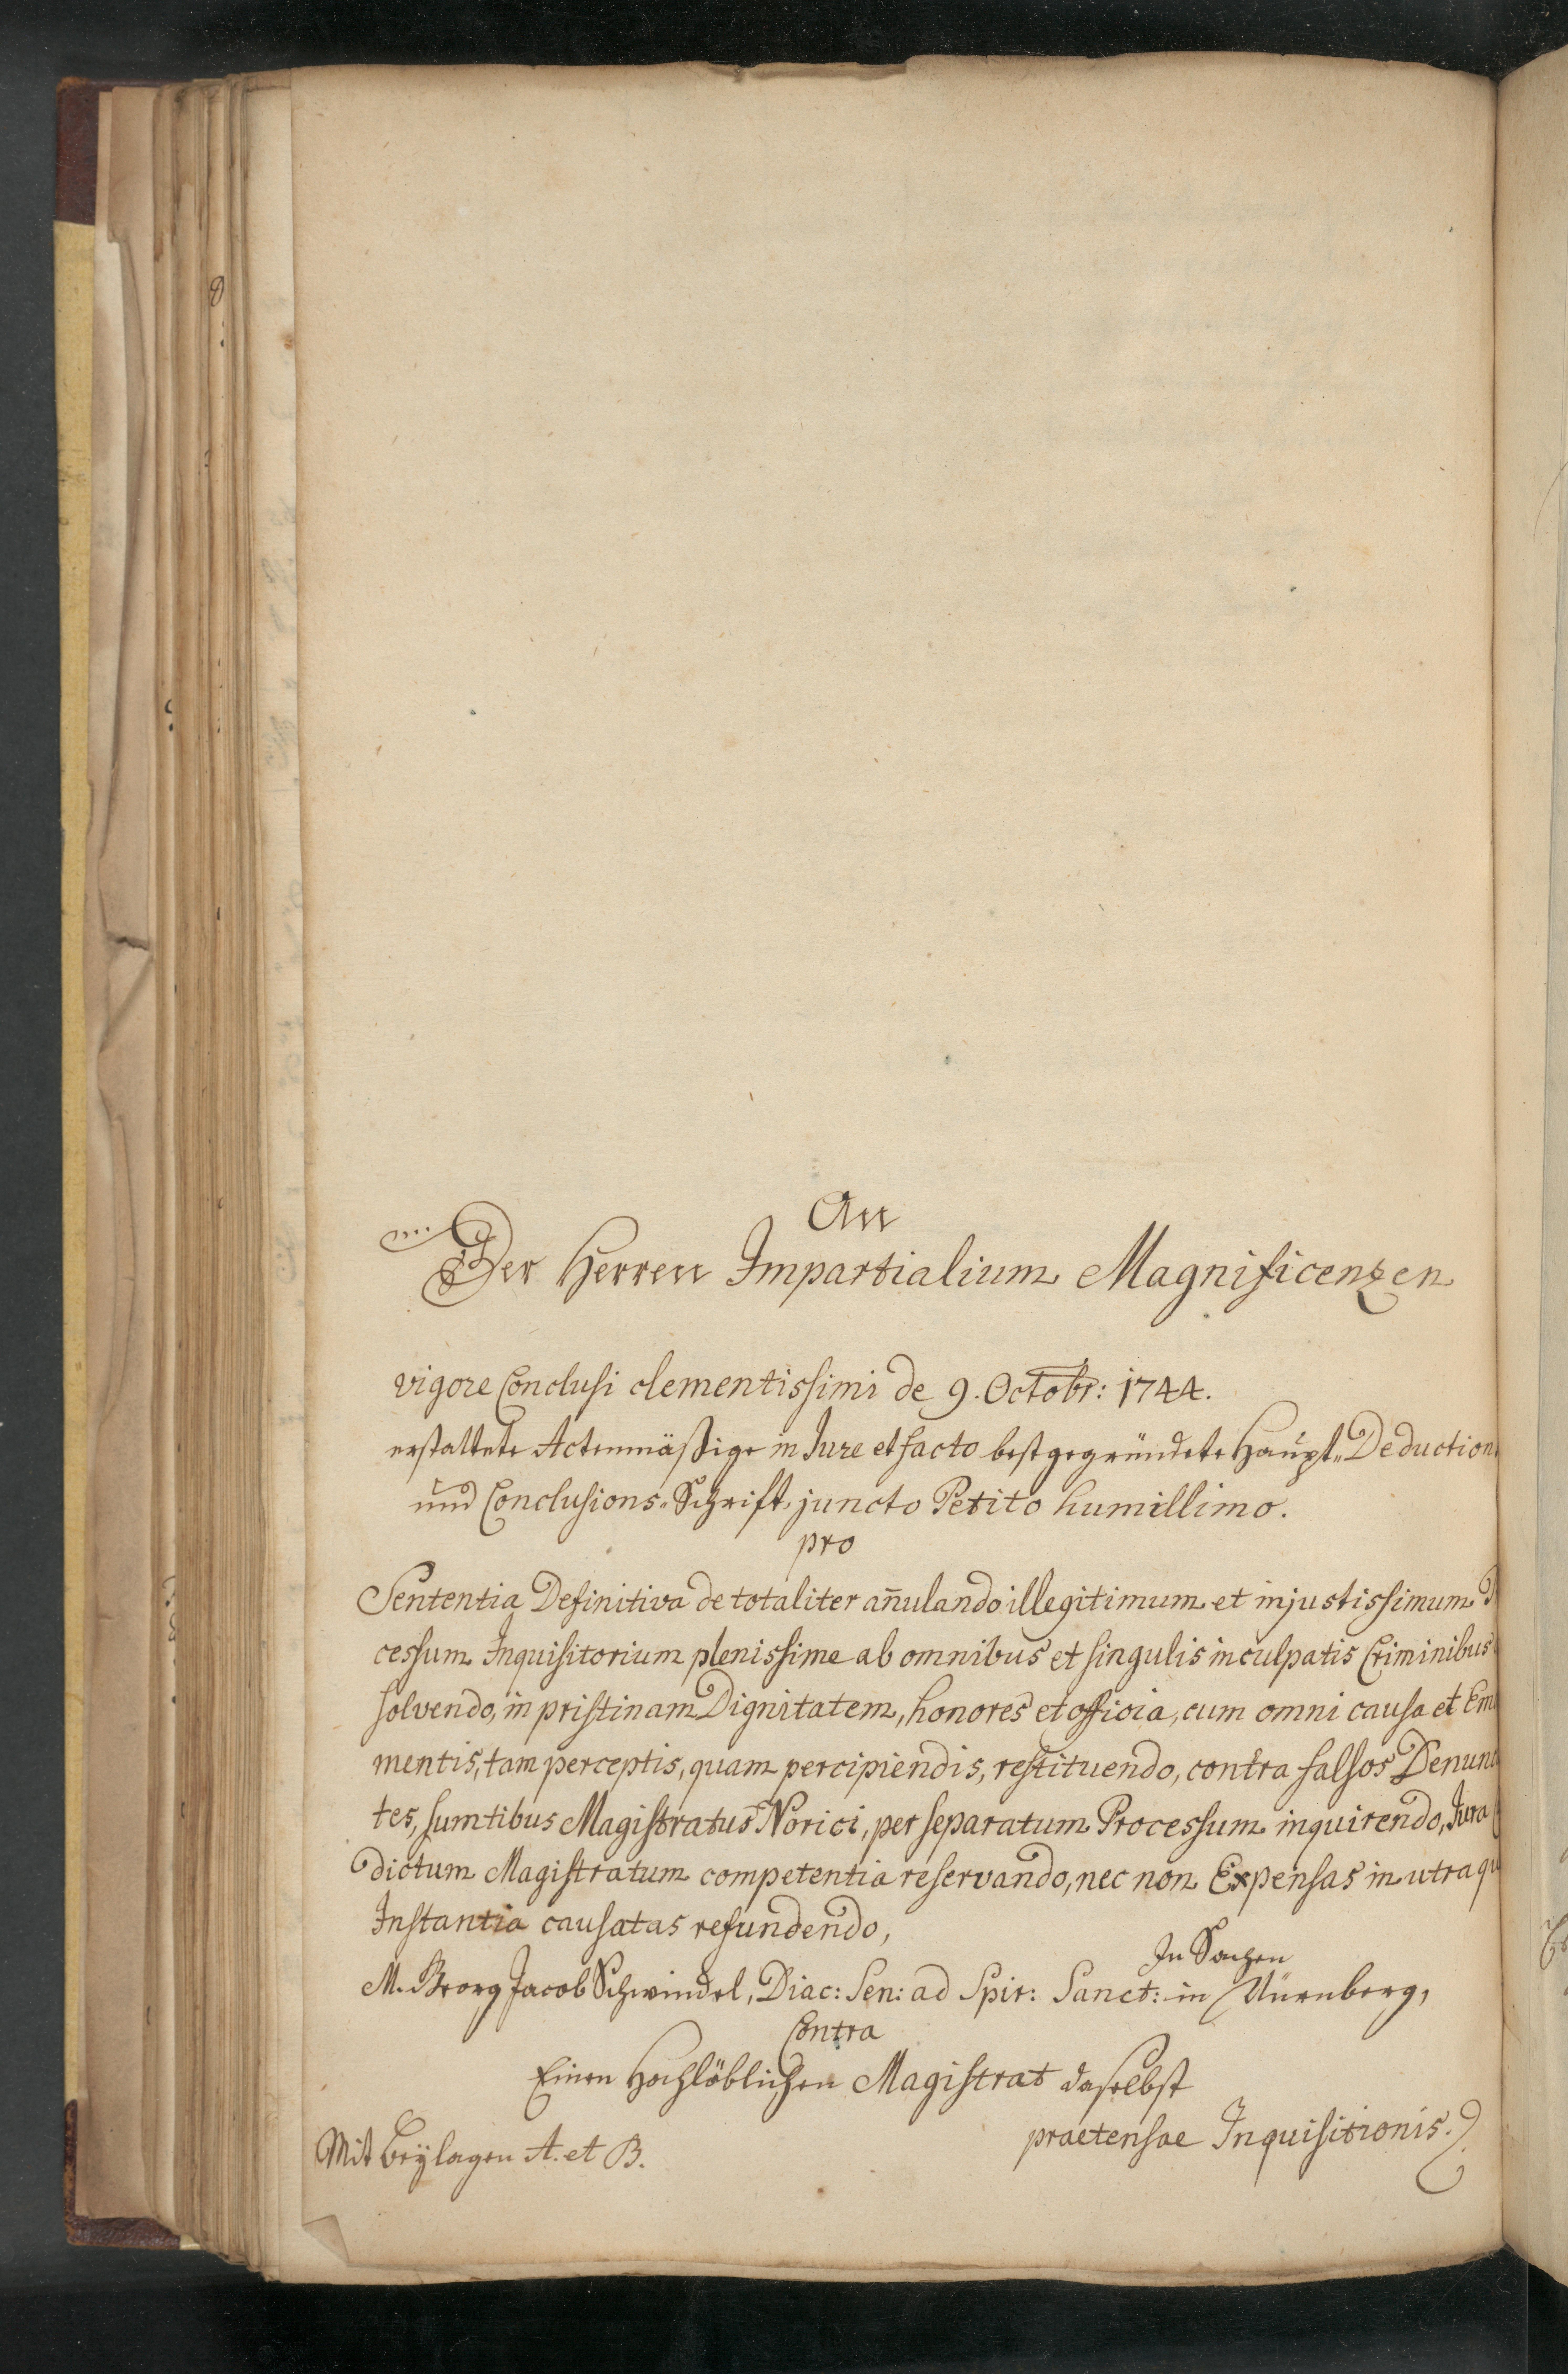 An
Der Herren Impartialium Magnificenzen
vigore Conclusi clementissimi de 9. Octobr: 1744.
erstattete Actenmäßige in Jure et facto bestgegründete Haupt„Deduction
und Conclusions„Schrift, juncto Petito humillimo.
pro
Sententia Definitiva de totaliter añulando illegitimum et injustissimum
cessum Inquisitorium plenissime ab omnibus et singulis inculpatis Criminibus
solvendo, in pristinam Dignitatem, honores et officia, cum omni causa et Em
mentis, tam perceptis, quam percipiendis, restituendo, contra falsos Denun
tes, sumtibus Magistratus Norici, per separatum Processum inquirendo, Jura
dictum Magistratum competentia reservando, nec non Expensas in utraqu
Instantia causatas refundendo,
In Sachen
M. Georg Jacob Schwindel, Diac: Sen: ad Spir: Sanct: in Nürnberg,
Contra
Einen Hochlöblichen Magistrat daselbst
praetensae Inquisitionis.
Mit Beÿlagen A. et B.